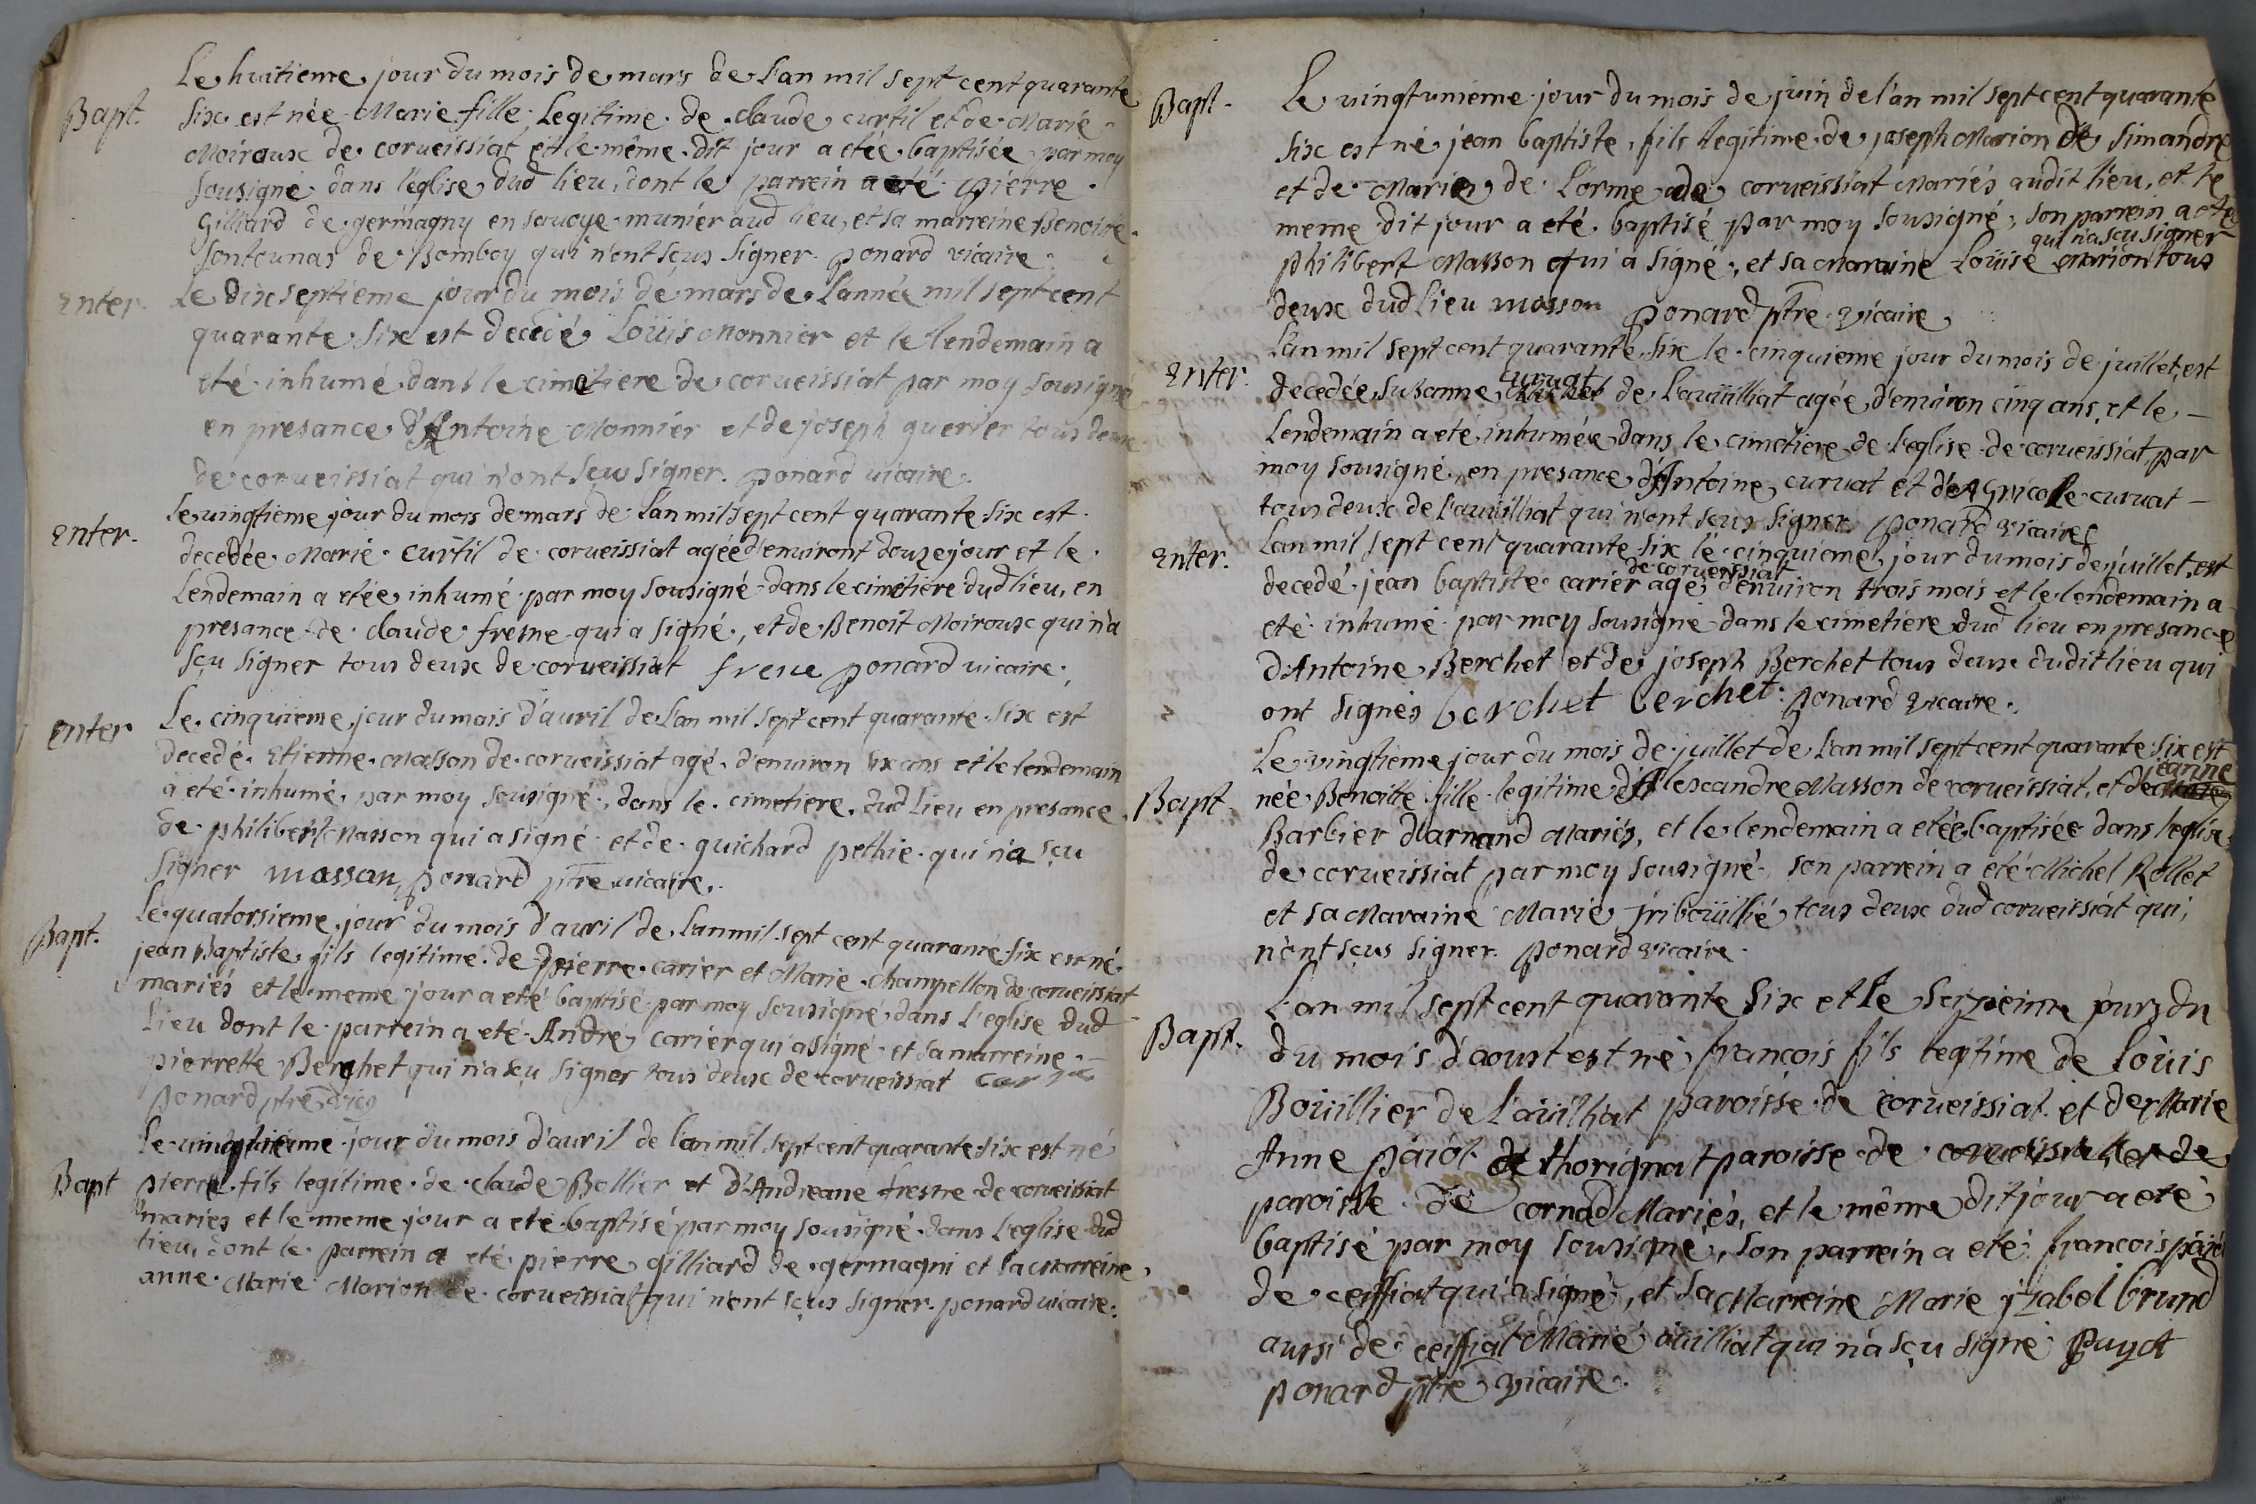 Le huitieme jour du mois de mars de l'an mil sept cent quarante
Bapt. six est née Marie fille Legitime de Claude curtil et de Marie
Moiroux de corveissiat et le même dit jour a etée baptisée par moy
sousigné dans l'eglise dud lieu, dont le parrein a eté pierre
Gilliard de germagny en savoye munier aud lieu, et sa marreine Benoite
fontcunas de Bomboy qui n'ont sçus signer. ponard vicaire.
Enter. Le dix septieme jour du mois de mars de L'année mil sept cent
quarante six est decedé Loüis Monnier et le lendemain a
eté inhumé dans le cimetiere de corveissiat par moy sousigné
en presance d'Antoine Monnier et de joseph querier tous deux
de corveissiat qui n'ont sçus signer. ponard vicaire.
Le vingtieme jour du mois de mars de Lan mil sept cent quarante six est
enter. decedée Marie curtil de corveissiat agée d'environt douze jour et le
Lendemain a etée inhumé par moy sousigné dans le cimetiere dud lieu, en
presance de claude fresne qui a signé, et de Benoit Moiroux qui n'a
sçu signer tous deux de corveissiat frene ponard vicaire.
enter Le cinquieme jour du mois d'avril de Lan mil sept cent quarante six est
decedé Etienne Masson de corveissiat agé d'environ six ans et le lendemain
a eté inhumé par moy sousigné, dans le cimetiere dud Lieu en presance
de philibert Masson qui a signé et de guichard pethie qui n'a sçu
signer masson, ponard ptre vicaire.
Le quatorsieme jour du mois d'avril de Lan mil sept cent quarante six est né
Bapt. jean Baptiste fils legitime de pierre carier et Marie champellon de corveissiat
mariés et le meme jour a eté baptisé par moy sousigné dans l'eglise dud
Lieu dont le parrein a eté André carier qui a signé et sa marreine
pierrette Berchet qui n'a sçu signer tous deux de corveissiat carié
ponard ptre vicq
Le vingtieme jour du mois d'avril de lan mil sept cent quarante six est né
Bapt pierre fils legitime de claude Bollier et d'Andreane fresne de corveissiat
mariés et le meme jour a eté baptisé par moy sousigné dans l'eglise dud
lieu, dont le parrein a eté pierre gilliard de germagni et sa Marreine
anne Marie Marion de corveissiat qui n'ont sçus signer. ponard vicaire.
Bapt. Le vingt unieme jour du mois de juin de l'an mil sept cent quarante
six est né jean baptiste fils legitime de joseph Marion de simandre
et de Marie de L'orme de corveissiat Mariés audit lieu, et le
meme dit jour a eté baptisé par moy sousigné, son parrein a eté
qui n'a sçu signer
philibert Masson qui a signé, et sa Maraine Loüise Marion tous
deux dud Lieu masson ponard ptre vicaire
Lan mil sept cent quarante six le cinquieme jour du mois de juillet, est
Enter. curvat
decedée Susanne de Lavüilliat agée d'environ cinq ans, et le
Lendemain a eté inhumée dans le cimetiere de l'eglise de corveissiat par
moy sousigné, en presance d'Antoine curvat et d'Agricole curvat
tous deux de Lavüilliat qui n'ont sçus signer ponard vicaire
Enter. Lan mil sept cent quarante six le cinquieme jour du mois de juillet, est
de corveissiat
decedé jean baptiste carier agé d'environ trois mois et le lendemain a
eté inhumé par moy sousigné dans le cimetiere dud lieu en presance
d'Antoine Berchet et de joseph Berchet tous deux dudit lieu qui
ont signés berchet berchet. ponard vicaire.
Le vingtieme jour du mois de juillet de l'an mil sept cent quarante six est
jeanne
Bapt née Benoitte fille legitime d'Alexandre Masson de corveissiat, et de
Barbier d'arnand Mariés, et le lendemain a etée baptisée dans l'eglise
de corveissiat par moy sousigné son parrein a eté Michel Rollet
et sa Maraine Marie friboüillié tous deux dud corveissiat qui
n'ont sçus signer. ponard vicaire.
L'an mil sept cent quarante six et le seizieime jours du
Bapt. du mois d'aoust est né françois fils legitime de loüis
Boüillier de Laüilliat paroisse de corveissiat et de Marie
Anne païot de thorignat paroisse de
paroisse de cornod Mariés, et le même dit jour a eté
baptisé par moy sousigné, son parrein a eté françois paje
de ceiffiat qui a signé, et sa Marreine Marie yzabel brund
aussi de ceiffiat Marié aüilliat qui n'a sçu signé Puyot
ponard ptre vicaire.